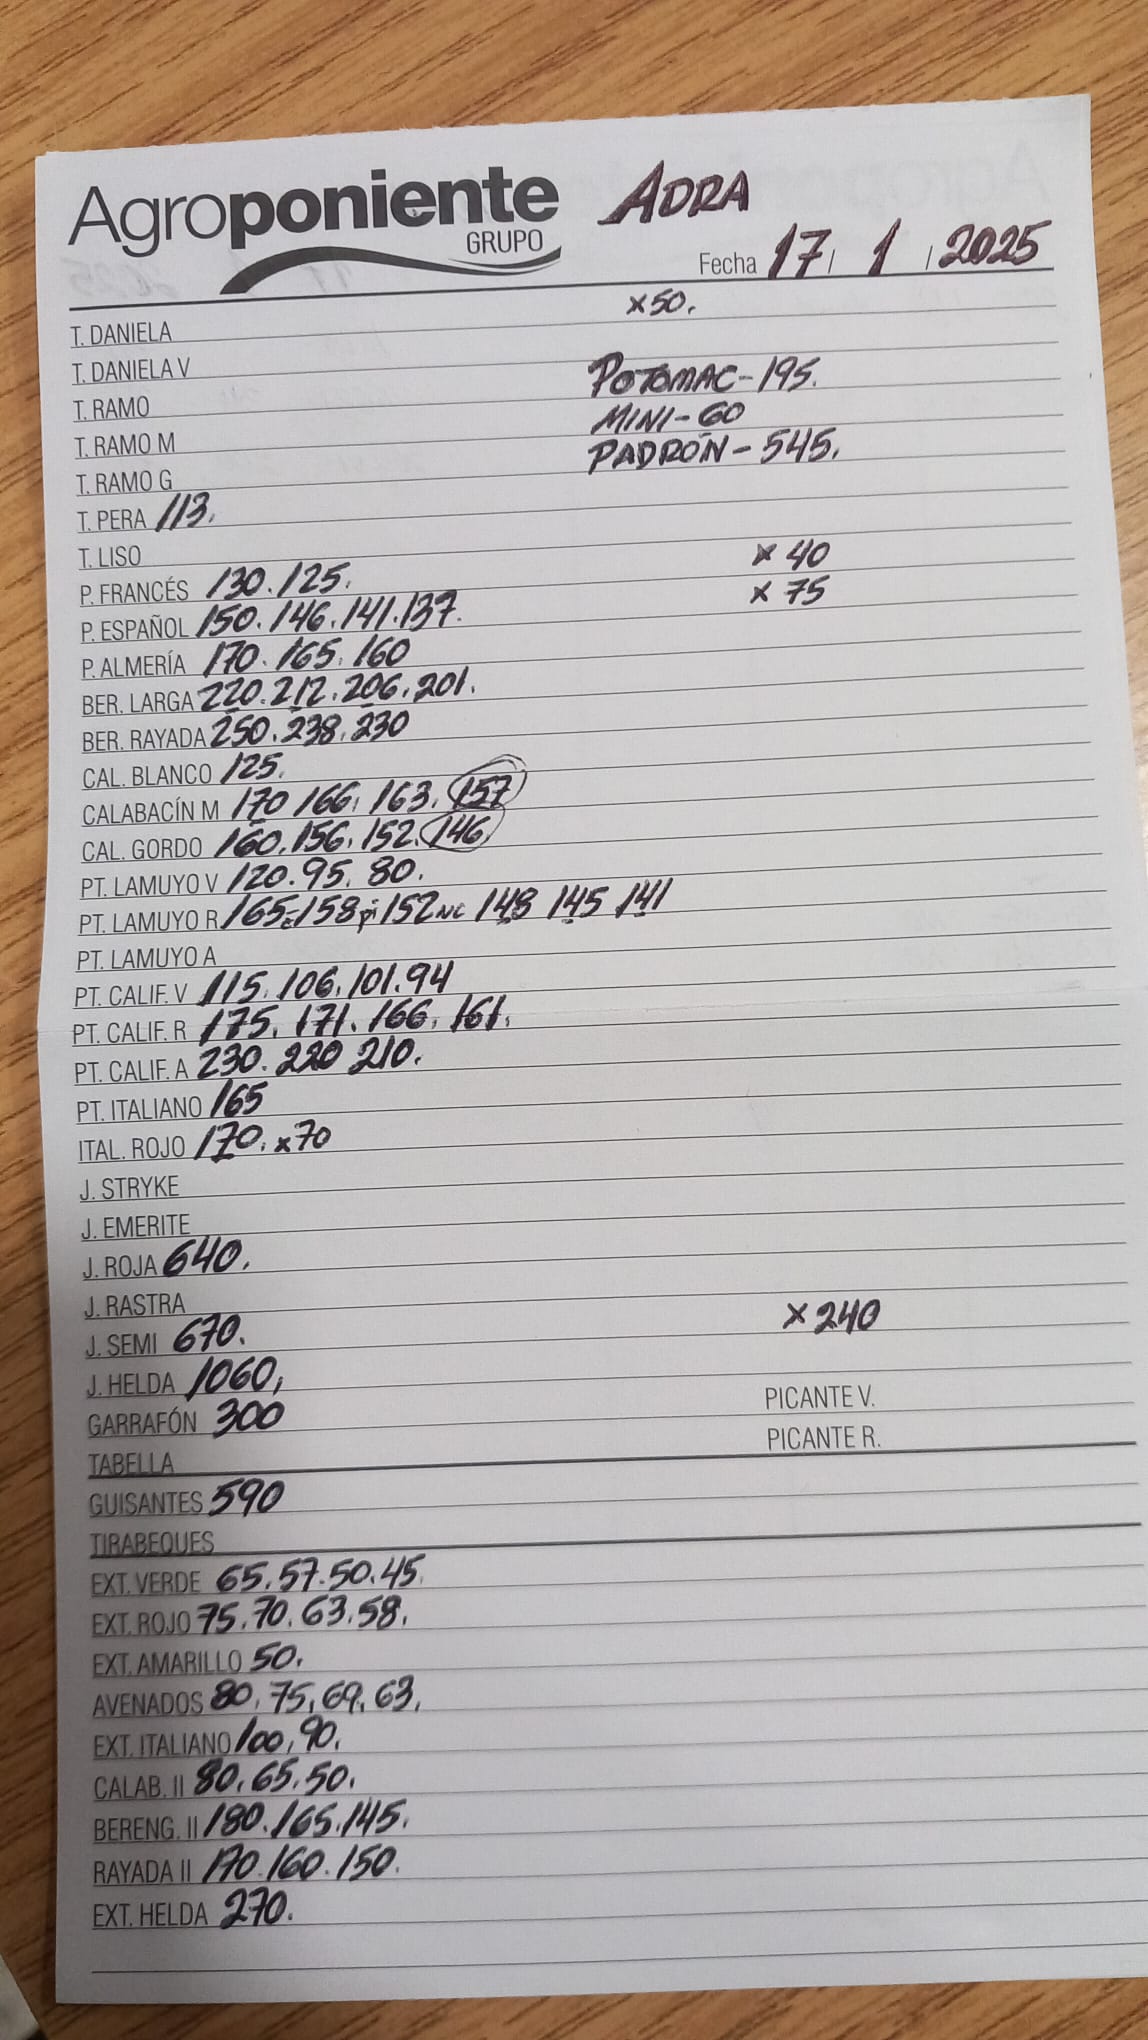 Agroponiente ADRA
GRUPO
Fecha 17/ 1 / 2025
x50.
T. DANIELA
T. DANIELA V POTOMAC-195.
T. RAMO MINI-60
T. RAMO M PADRÓN-545.
T. RAMO G
T. PERA 113.
T. LISO x 40
P. FRANCÉS 130.125. x 75
P. ESPAÑOL 150.146.141.137.
P. ALMERÍA 170.165.160
BER. LARGA 220.212.206.201.
BER. RAYADA 250.238.230
CAL. BLANCO 125.
CALABACÍN M 170 166. 163. 157
CAL. GORDO 160.156.152.146.
PT. LAMUYO V 120.95.80.
PT. LAMUYO R 165 158 pi 152 NC 148 145 141
PT. LAMUYO A
PT. CALIF. V 115.106.101.94
PT. CALIF. R 175.171.166.161.
PT. CALIF. A 230.220 210.
PT. ITALIANO 165
ITAL. ROJO 170. x70
J. STRYKE
J. EMERITE
J. ROJA 640.
J. RASTRA
J. SEMI 670. x 240
J. HELDA 1060,
GARRAFÓN 300 PICANTE V.
TABELLA PICANTE R.
GUISANTES 590
TIRABEQUES
EXT. VERDE 65.57.50.45.
EXT. ROJO 75.70.63.58.
EXT. AMARILLO 50.
AVENADOS 80.75.69.63.
EXT. ITALIANO 100,90.
CALAB. II 80.65.50.
BERENG. II 180.165.145.
RAYADA II 170.160.150.
EXT. HELDA 270.